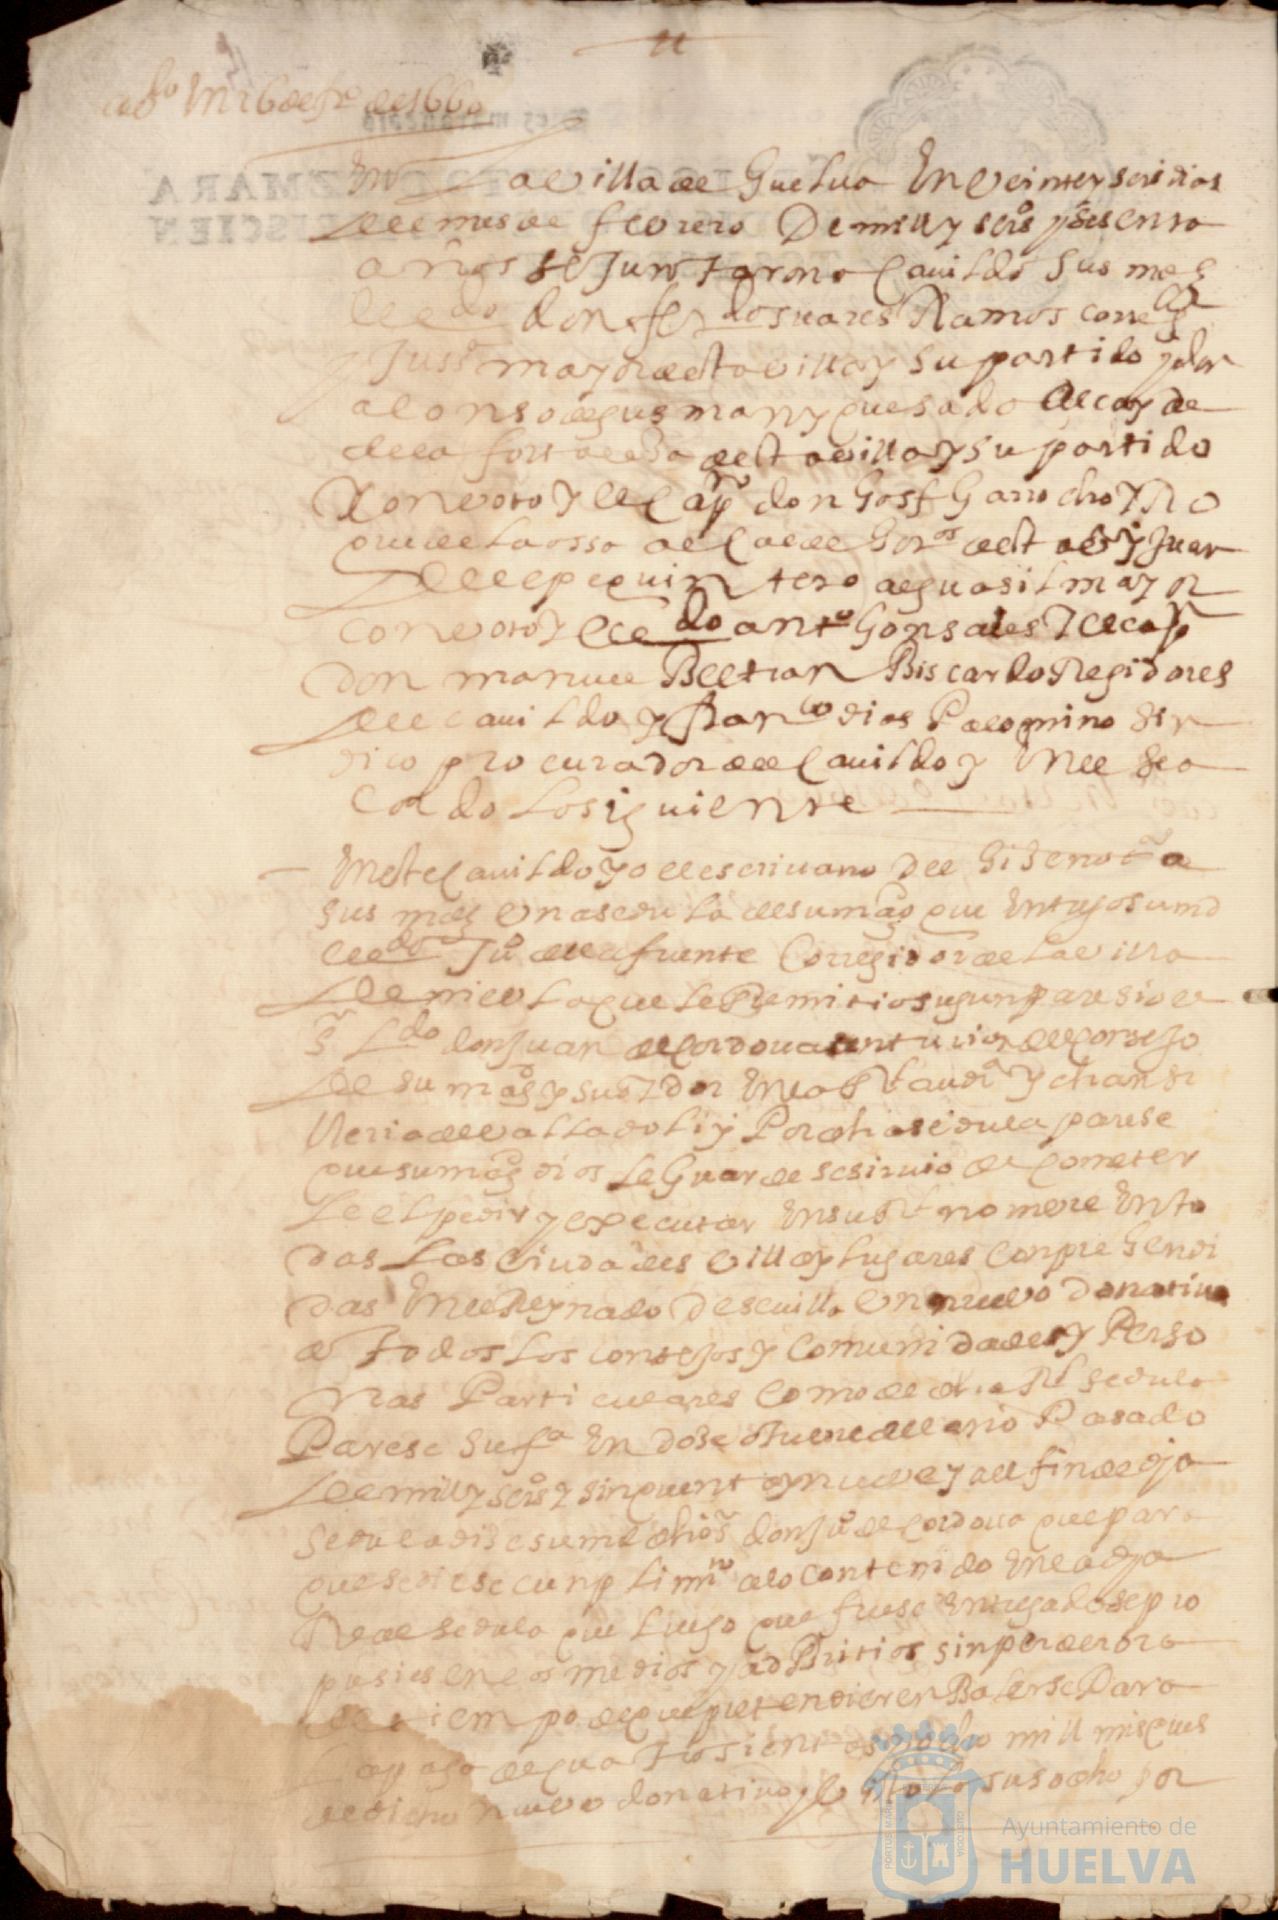 11
cabdo en 26 de fro de 1660
En La villa de Guelva En Veinte y seis dias
del mes de febrero De mill y seisos y sesenta
años se Juntaron a Cavildo Sus mds
el ldo don ferdo suares Ramos corregor
y Justa mayor de esta villa y su partido y don
alonso de gusman y quesada Alcayde
de la fortalesa de esta villa y su partido
Con voto y el Capn don Josf Garrocho y
de la ossa alcalde hordos de esta va y Juan
de lepe quintero alguasil mayor
con voto y el ldo anto Gonsales y el capn
don manuel Beltran Biscardo Regidores
del cavildo y franco dias Palomino sin
dico procurador del Cavildo y En el se a
cordo lo siguiente
En este Cavildo yo el escrivano Del hise notoa
Sus mds Una sedula de su magd que Entrego su md
el ldo Juo de la fuente Corregidor de la villa
de niebla que le Remitio segun paresio el
Sr Ldo don Juan de Cordova centurion del Consejo
de su magd y su oydor En la Rl audia y chansi
lleria de valladolid y Por dha sedula parese
que su magd dios le Guarde se sirvio de Cometer
le el pedir y executar En su Rl nombre En to
das Las Ciudades villas y lugares Conprehendi
das En el Reynado De sevilla Un nuevo Donativo
a todos los consejos y Comunidades y Perso
nas Particulares Como de dha Rl sedula
Parese su fa En dose otubre del año Pasado
de mill y seisos y sinquenta y nueve y al fin de dja
sedula dise su md dho sr don Juo de Cordova que para
que se diese cunplimto a lo contenido En la dja
Real sedula que luego que fuese Entregada se pro
pusiesen los medios y adbitrios sin perder ora
de tiempo de que pretendieren Balerse Para
La paga de quatrosientos mill mrs que es
de dicho nuevo donativo y visto lo susodho por
Ayuntamiento de
HUELVA
PORTUS MARIS
CUSTODIA